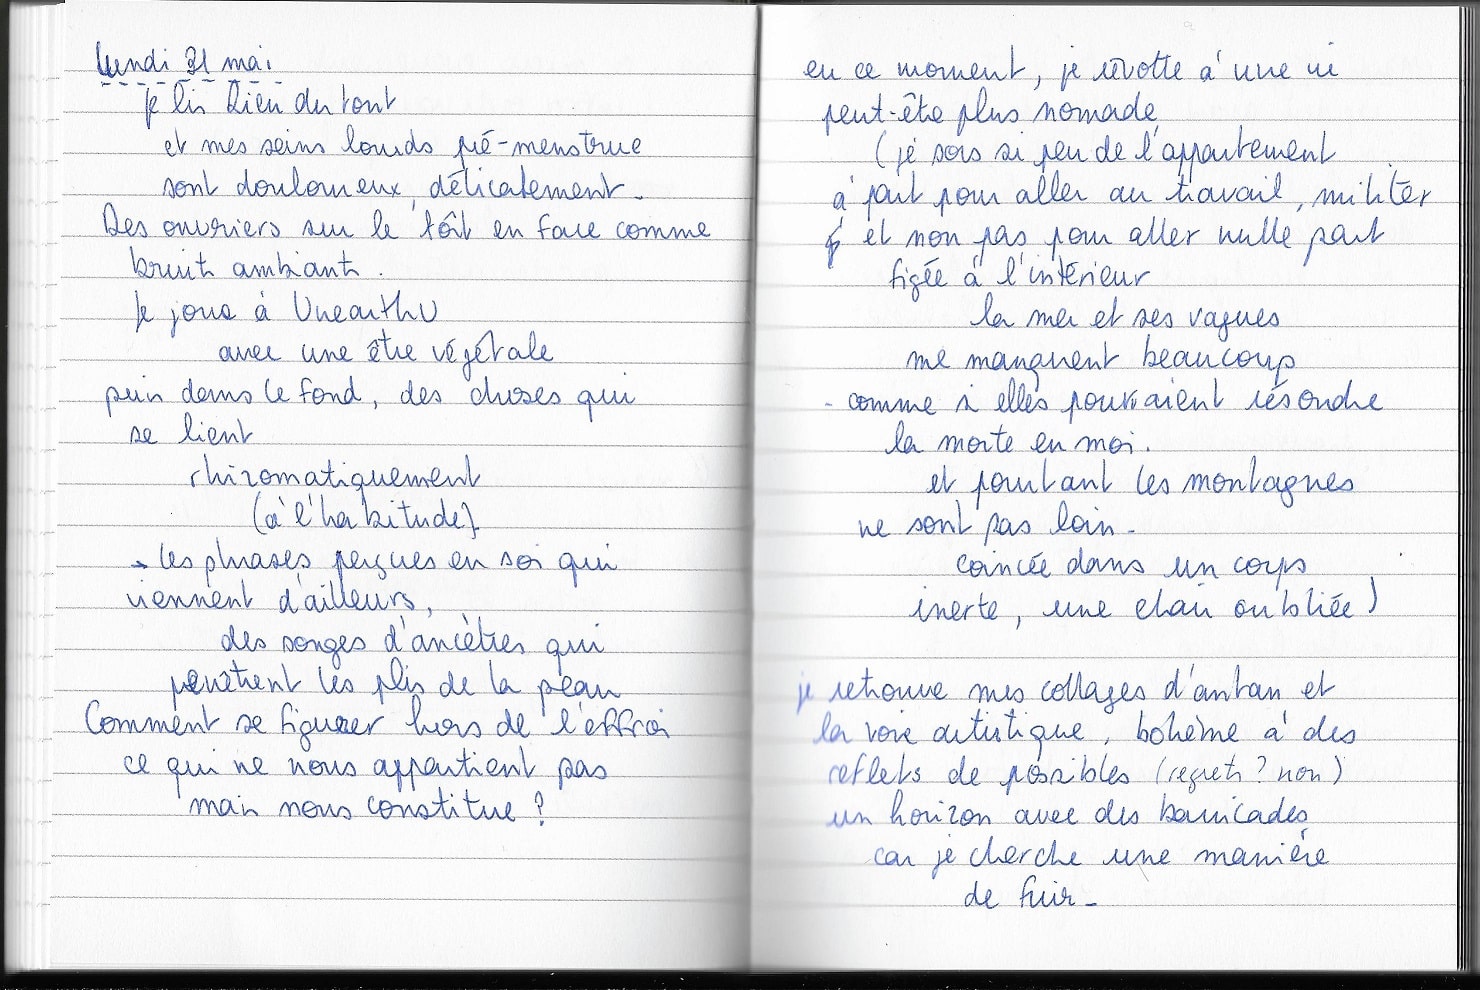 Lundi 31 mai
je lis Rien du tout
et mes seins lourds pré-menstrue
sont douloureux, délicatement.
Des ouvriers sur le toît en face comme
bruit ambiant.
Je joue à
avec une être végétale
puis dans le fond, des choses qui
se lient
rhizomatiquement
(à l'habitude)
les phrases perçues en soi qui
viennent d'ailleurs,
des songes d'ancêtres qui
pénètrent les plis de la peau
Comment se figurer hors de l'effroi
ce qui ne nous appartient pas
mais nous constitue ?
en ce moment, je
à une vie
peut-être plus nomade
(je sors si peu de l'appartement
à part pour aller au travail, militer
et non pas pour aller nulle part
figée à l'intérieur
la mer et ses vagues
me manquent beaucoup
- comme si elles pouvaient résoudre
la morte en moi.
et pourtant les montagnes
ne sont pas loin -
coincée dans un corps
inerte, une chair oubliée)
je retrouve mes collages d'antan et
la voie artistique, bohème à des
reflets de possibles (regrets ? non)
un horizon avec des barricades
car je cherche une manière
de fuir -